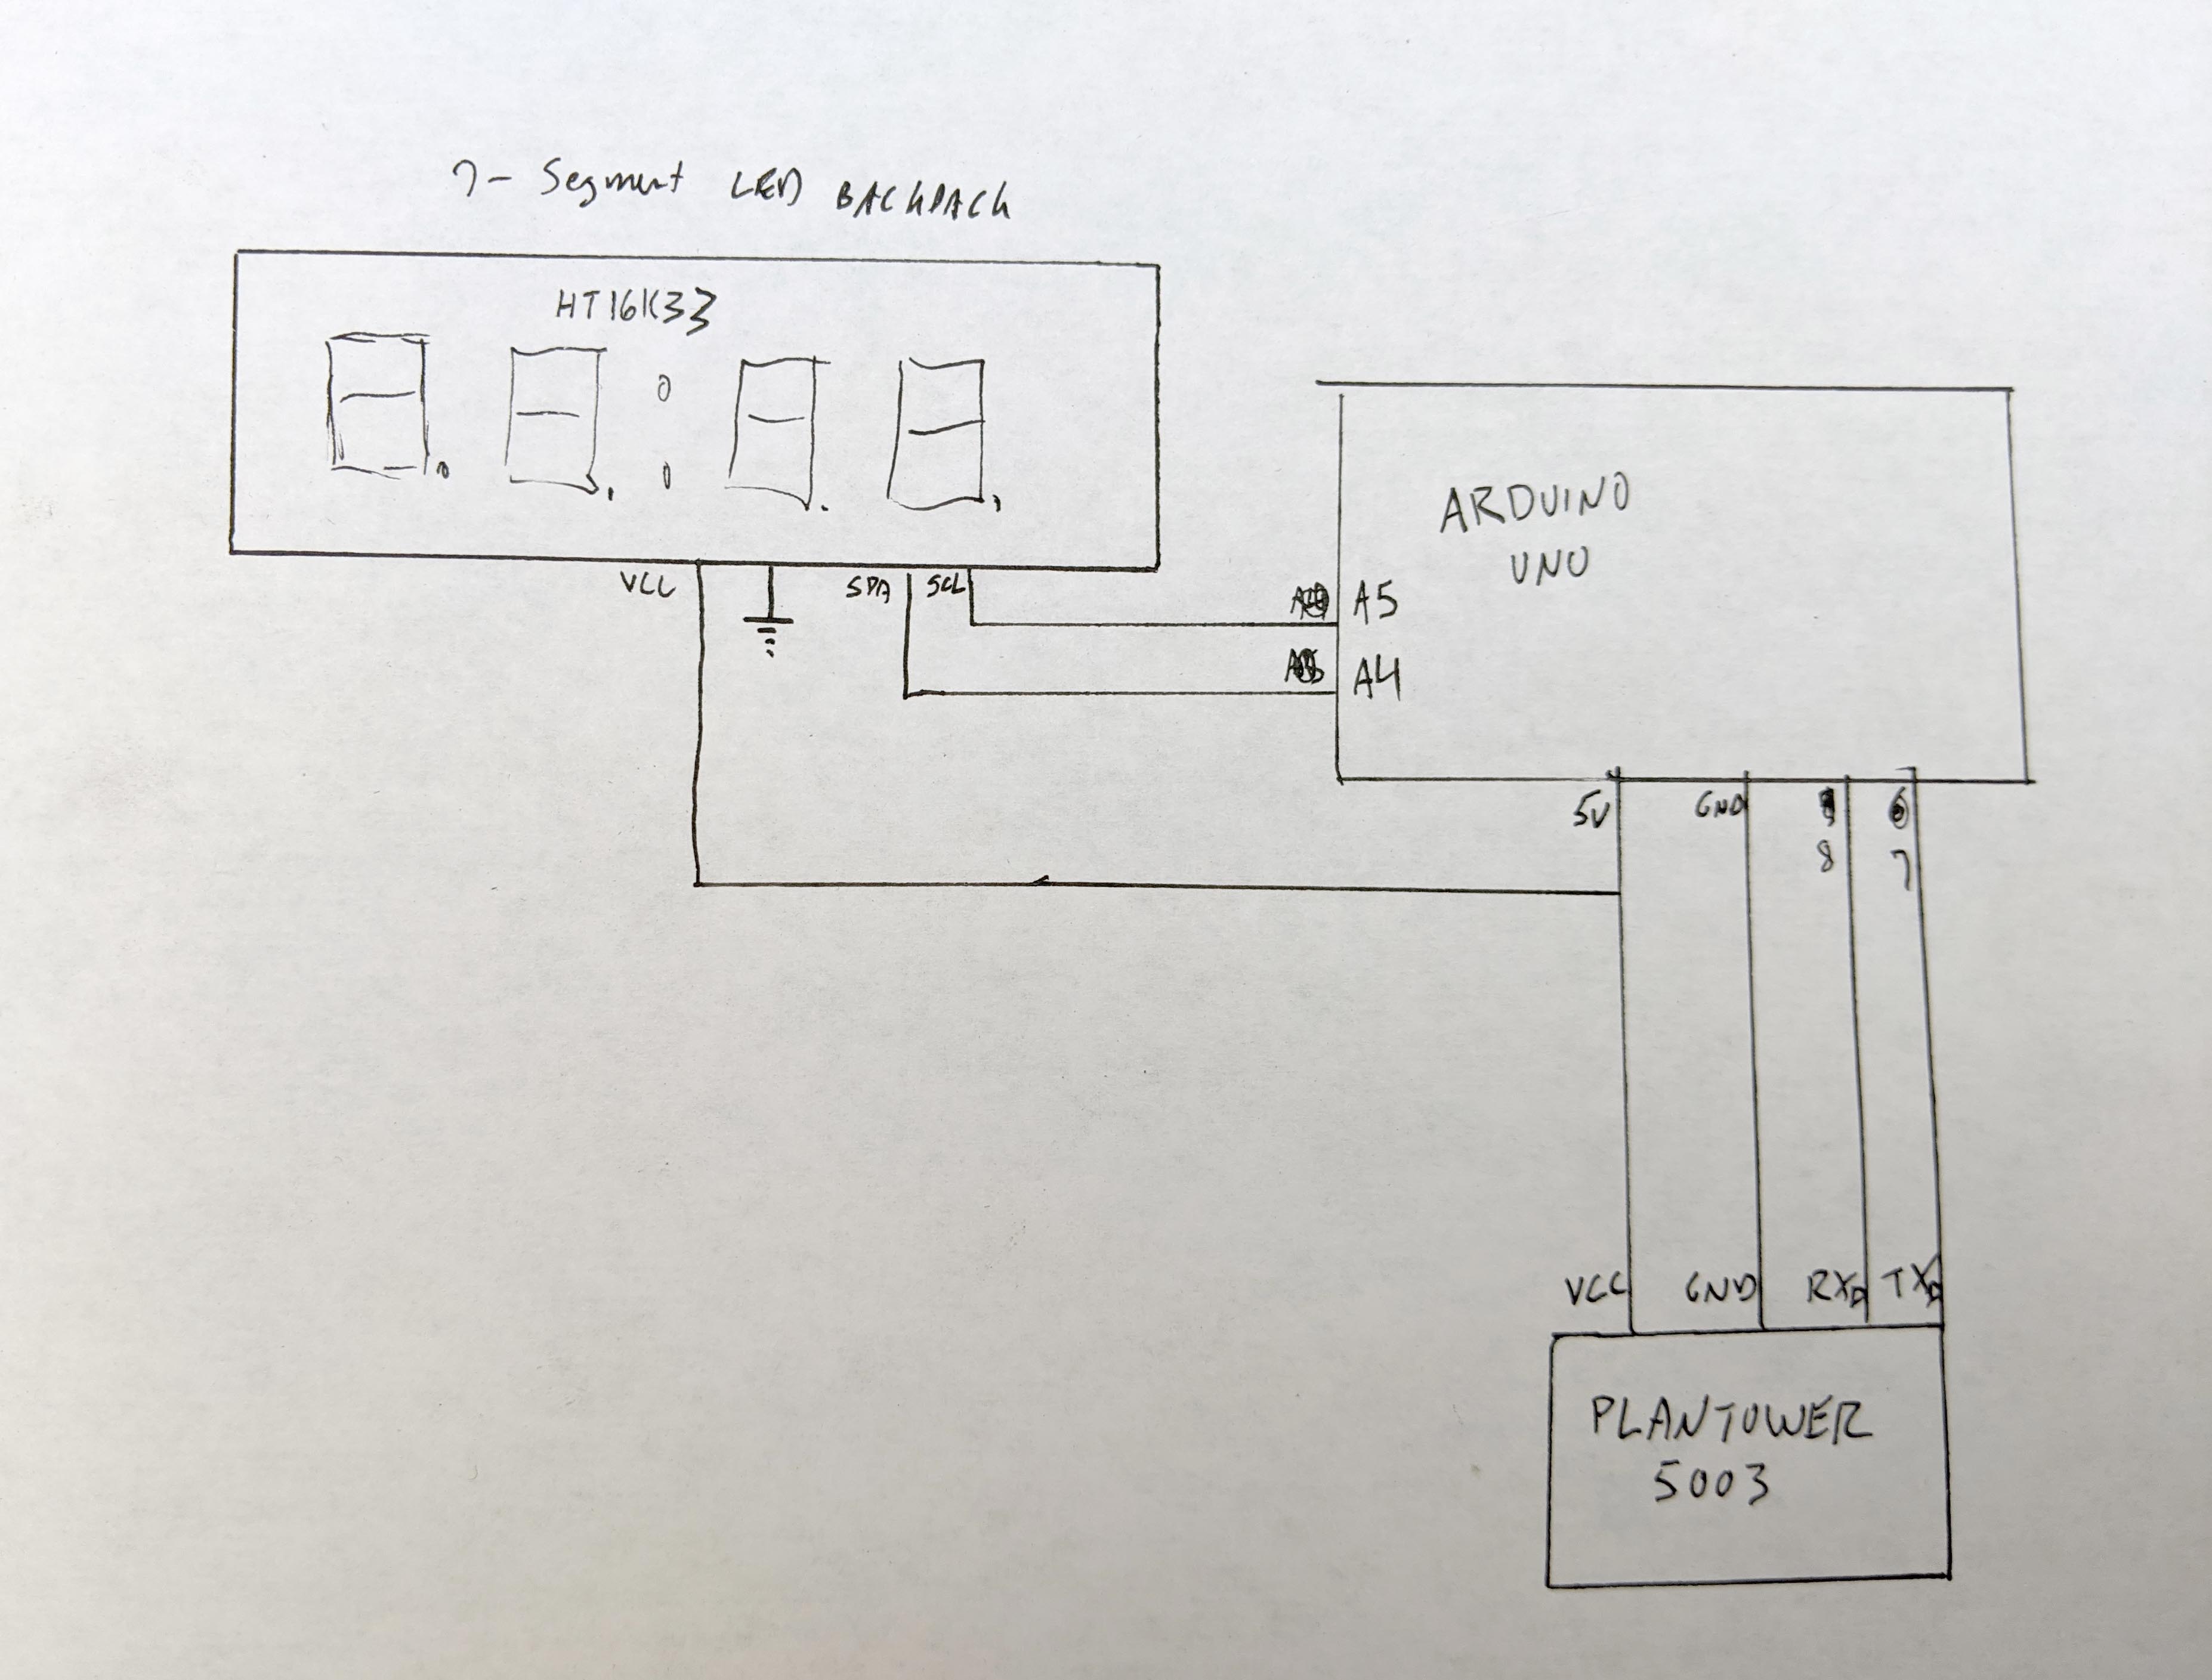 7- Segment LED BACKPACK
HT16K33
VCC
SDA
SCL
ARDUINO
UNO
A5
A4
5V
GND
6
8
7
VCC
GND
RXD
TXD
PLANTOWER
5003